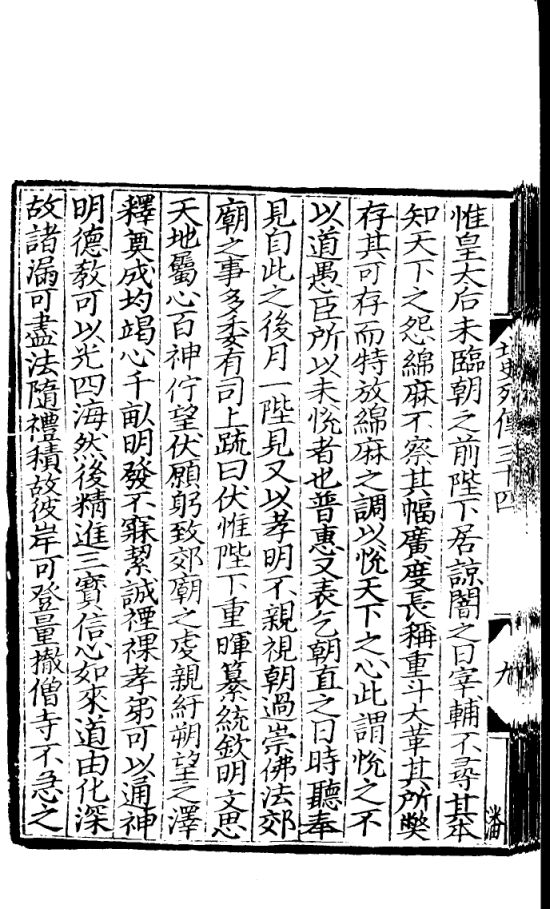 惟皇太后未臨朝之前陛下居諒闇之日宰輔不尋其本
知天下之怨綿麻不察其幅廣度長稱重斗大革其所弊
存其可存而特放綿麻之調以恱天下之心此謂恱之不
以道愚臣所以未恱者也普惠又表乞朝直之日時聽奉
見自此之後月一陛見又以孝明不親視朝過崇佛法郊
廟之事多委有司上䟽曰伏惟陛下重暉纂統欽明文思
天地屬心百神佇望伏願躬致郊廟之虔親紆朔望之澤
釋奠成均竭心千畝明發不寐絜誠禋祼孝弟可以通神
明德教可以光四海然後精進三寶信心如來道由化深
故諸漏可盡法隨禮積故彼岸可登量撤僧寺不急之
列傳三十四
九